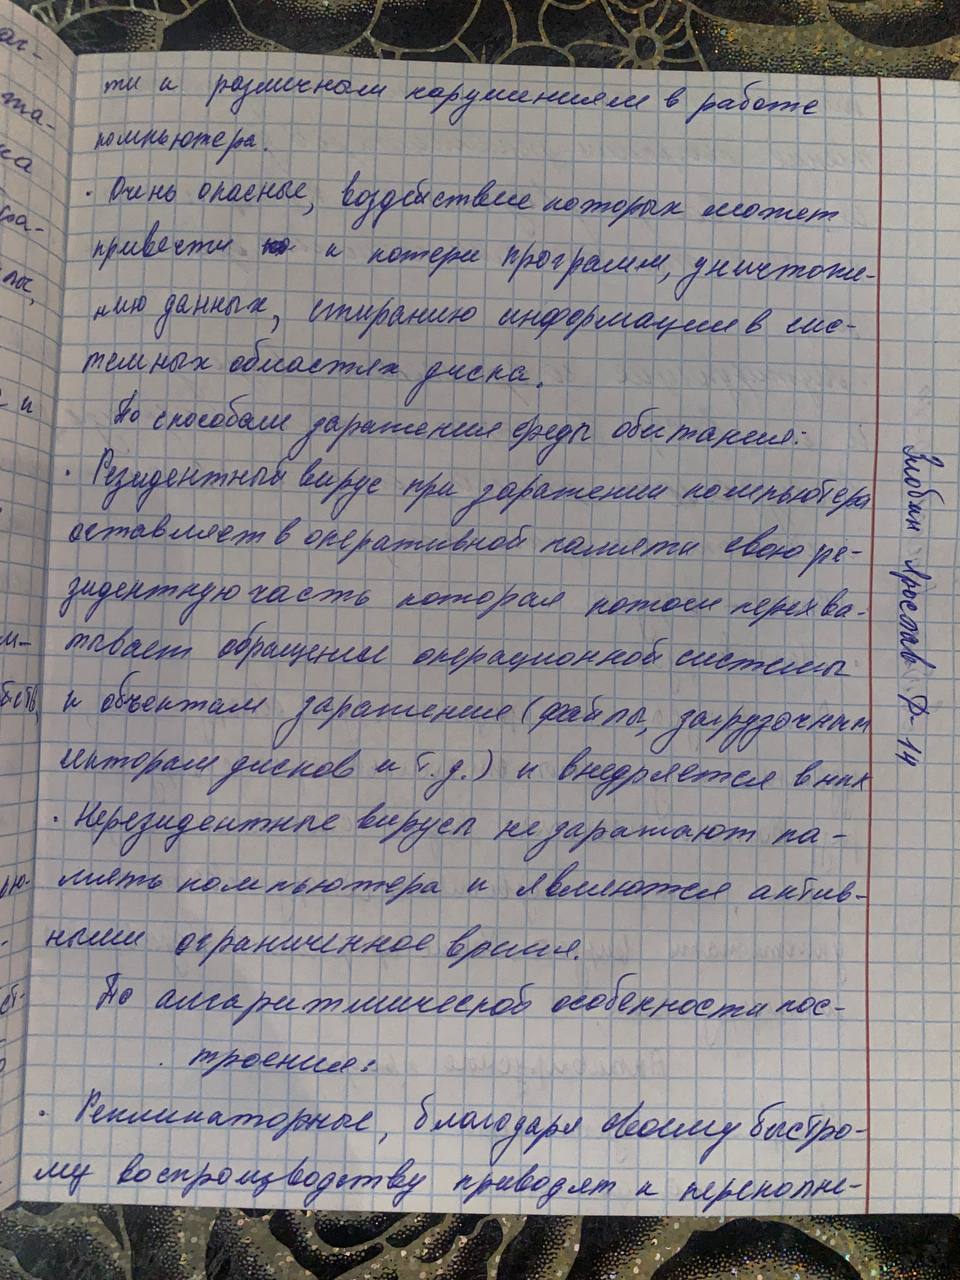 ти и различным нарушениям в работе
компьютера.
· Очень опасные, воздействие которых может
привести к потери программ, уничтоже-
нию данных, стиранию информации в сис-
темных областях диска.
По способам заражения среды обитания:
· Резидентный вирус при заражении компьютера
оставляет в оперативной памяти свою ре-
зидентную часть которая потом перехва-
тывает обращение операционной системы
к объектам заражения (файлы, загрузочным
секторам дисков и т.д.) и внедряется в них
· Нерезидентные вирусы не заражают па-
мять компьютера и являются актив-
ными ограниченное время.
По алгаритмической особенности пос-
троения:
· Репликаторные, благодаря своему быстро-
му воспроизводству приводят к переполне-
Злобин Ярослав Д-14